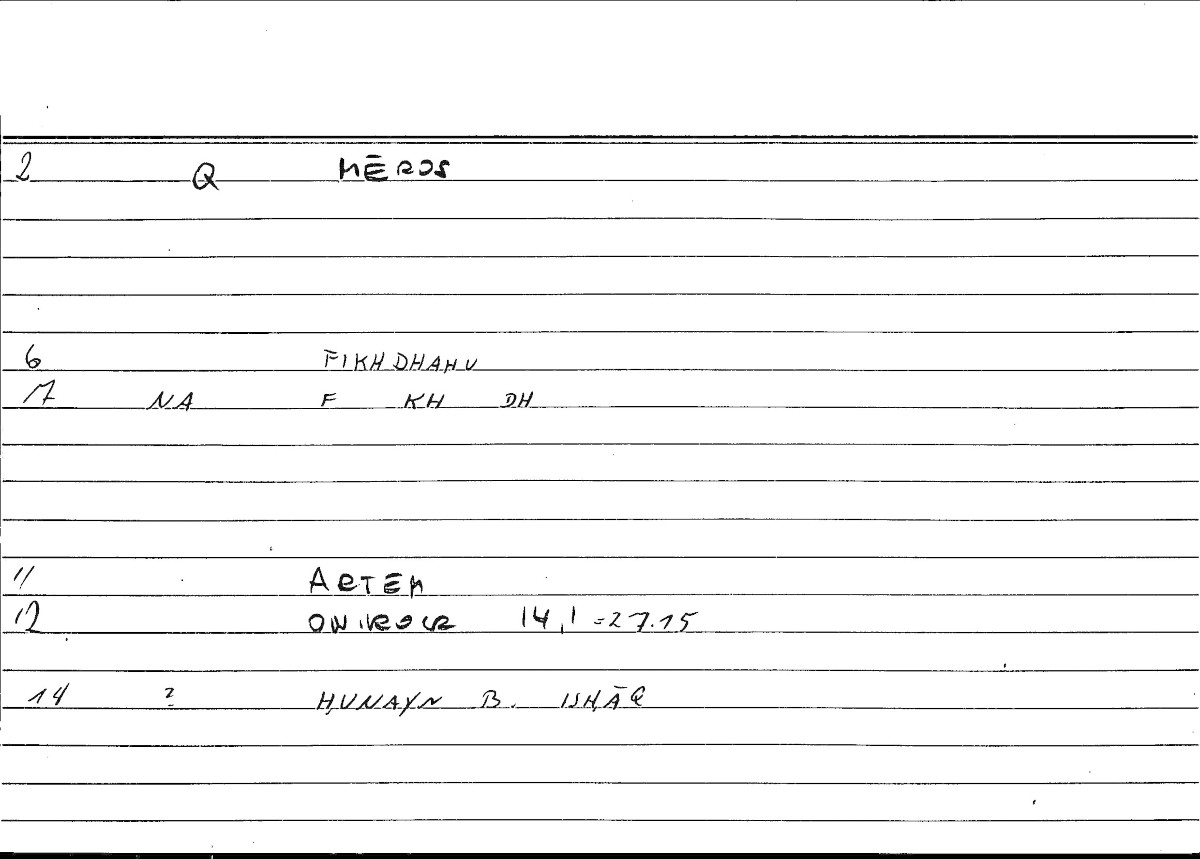 2 Q MĒROS
6 FIKHDHAHU
7 NA F KH DH
11 ARTEM
12 ONIROCR 14,1 =27.15
14 ? ḤUNAYN B. ISḤĀQ